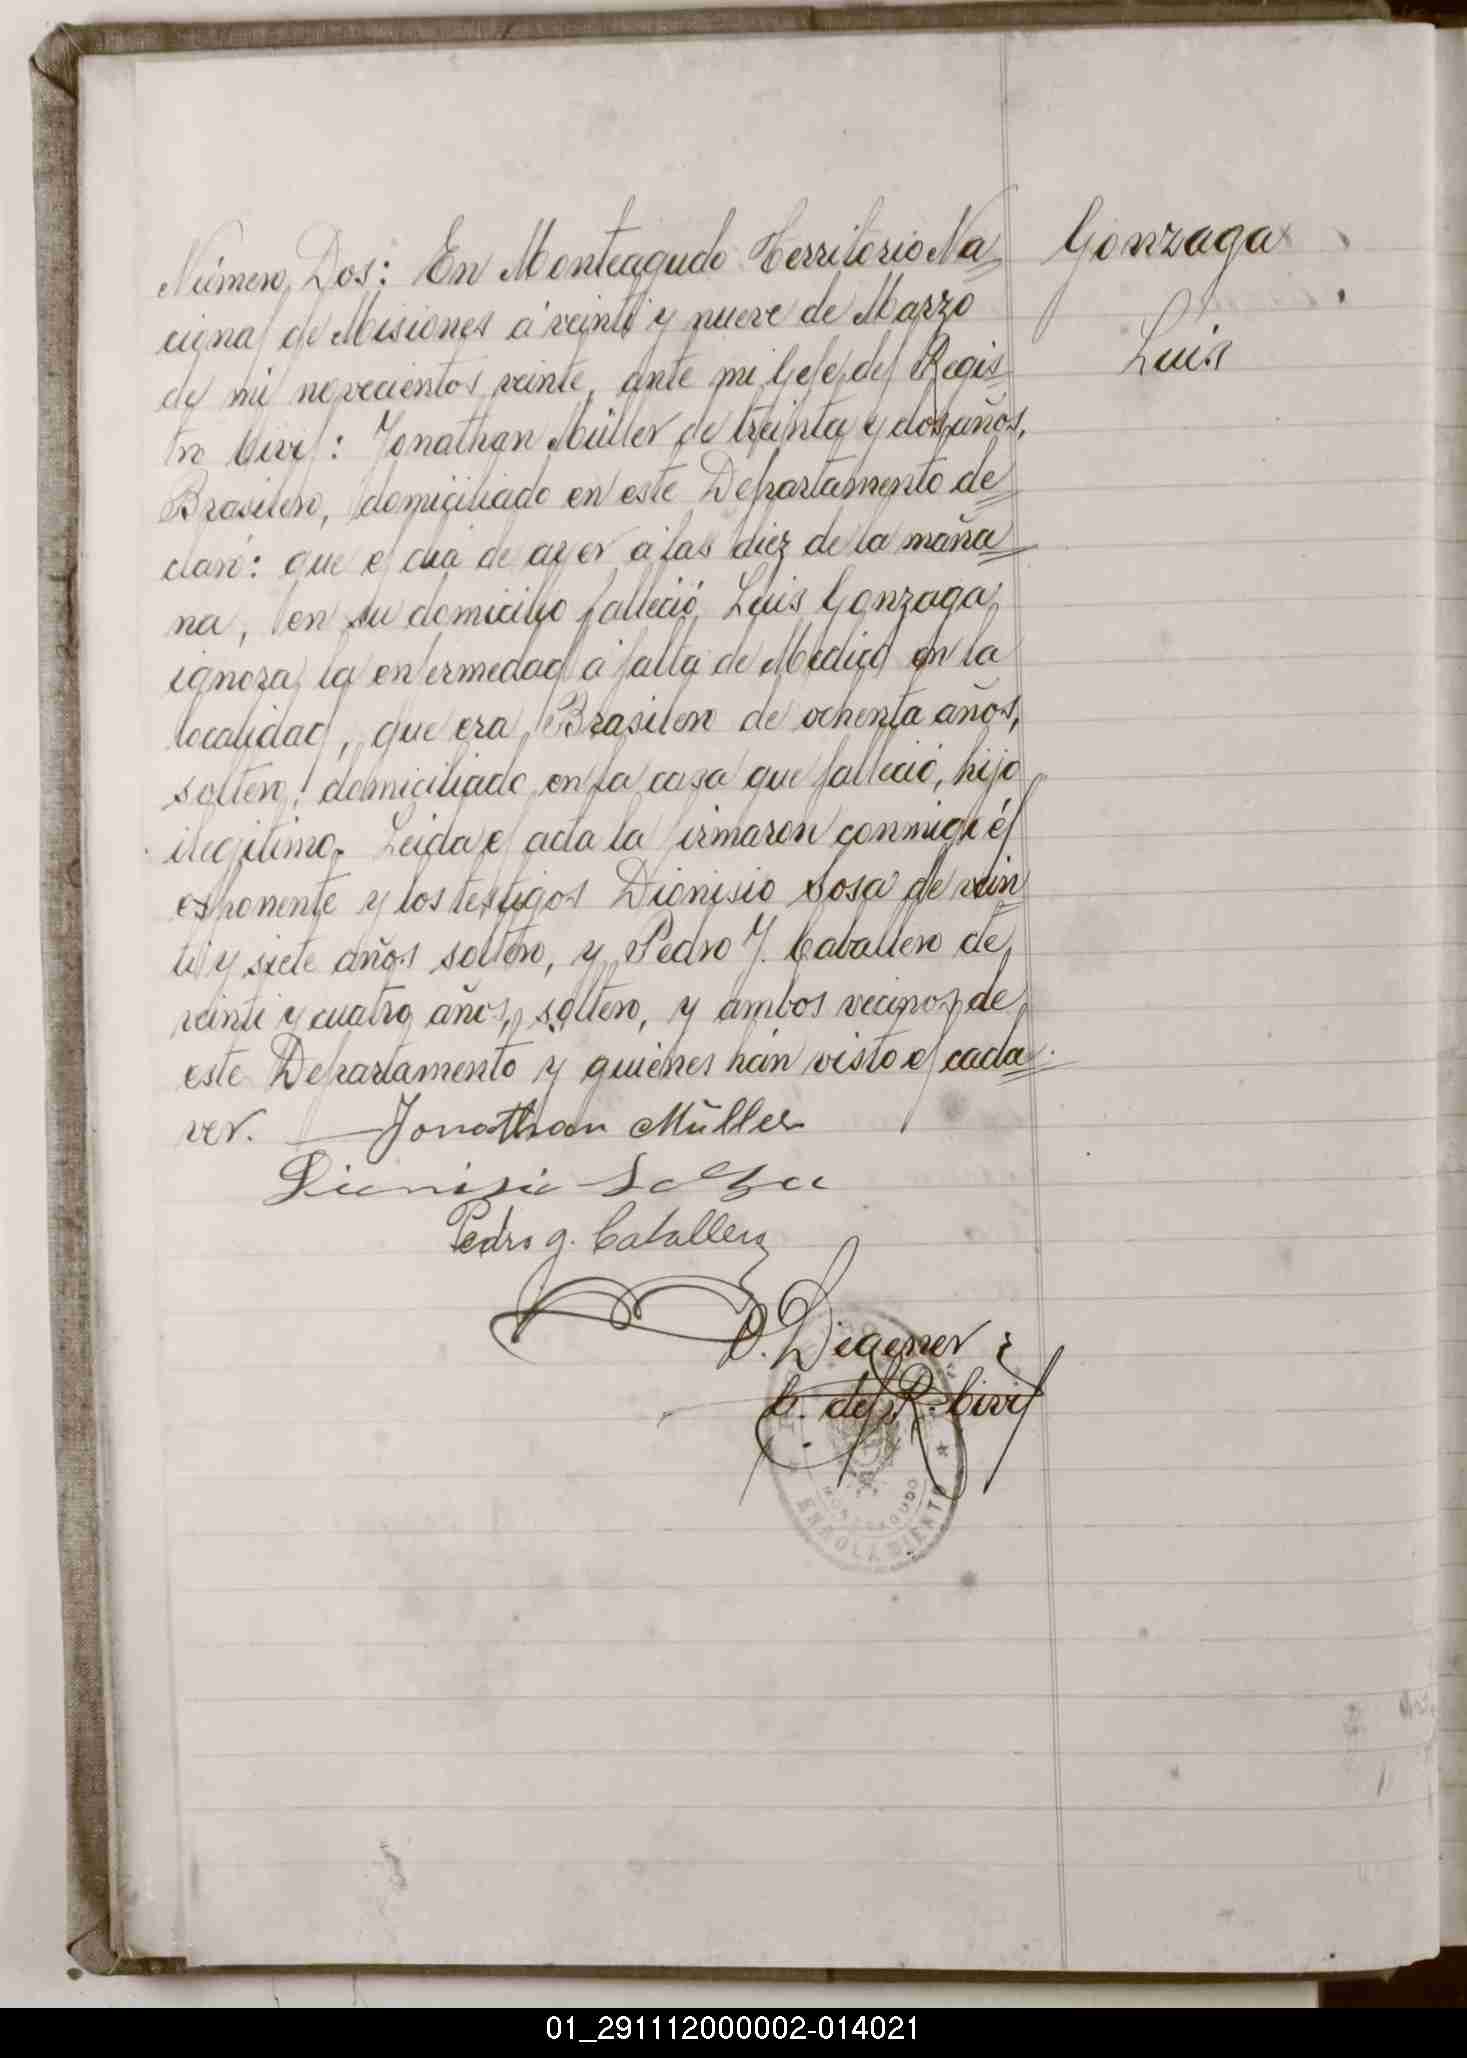 Número Dos: En Monteagudo Territorio Na
cional de Misiones á veinti y nueve de Marzo
de mil novecientos veinte, ante mi Gefe del Regis
tro Civil: Jonathan Müller de treinta y dos años,
Brasilero, domiciliado en este Departamento de
claró: que el dia de ayer á las diez de la maña
na, en su domicilio falleció Luis Gonzaga,
ignora la enfermedad á falta de Medico en la
localidad, que era Brasilero de ochenta años,
soltero, domiciliado en la casa que falleció, hijo
ilegitimo. Leida el acta la firmaron conmigo él
esponente y los testigos Dionisio Sosa de vein
ti y siete años soltero, y Pedro J. Caballero de
veinti y cuatro años, soltero, y ambos vecinos de
este Departamento y quiénes hán visto el cada
ver. Jonathan Müller
Dionisio Sosa
Pedro J. Caballero
Degener
G. del R. Civil
MONTEAGUDO
Gonzaga
Luis
01_291112000002-014021